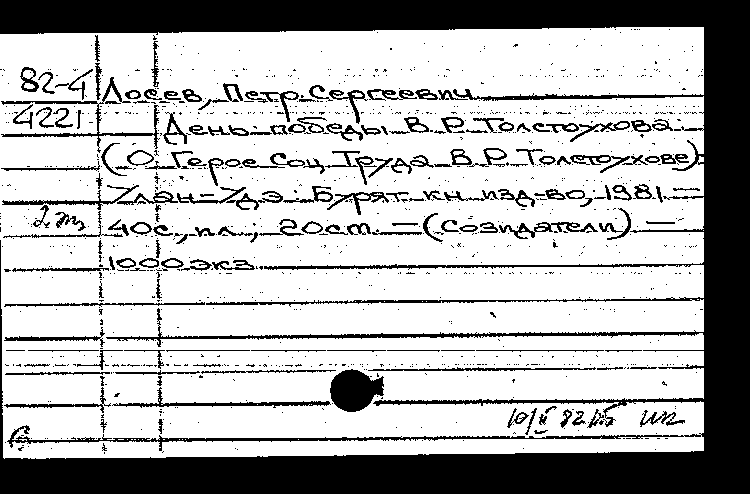 82-4 Лосев, Петр Сергеевич
4221 День победы В.Р. Толстоухова.
(О Герое Соц. Труда В.Р. Толстоухове).
Улан-Удэ: Бурят. кн. изд-во, 1981. —
2 экз. 40с., ил.; 20см. — (Созидатели). —
1000 экз.
10/II 82